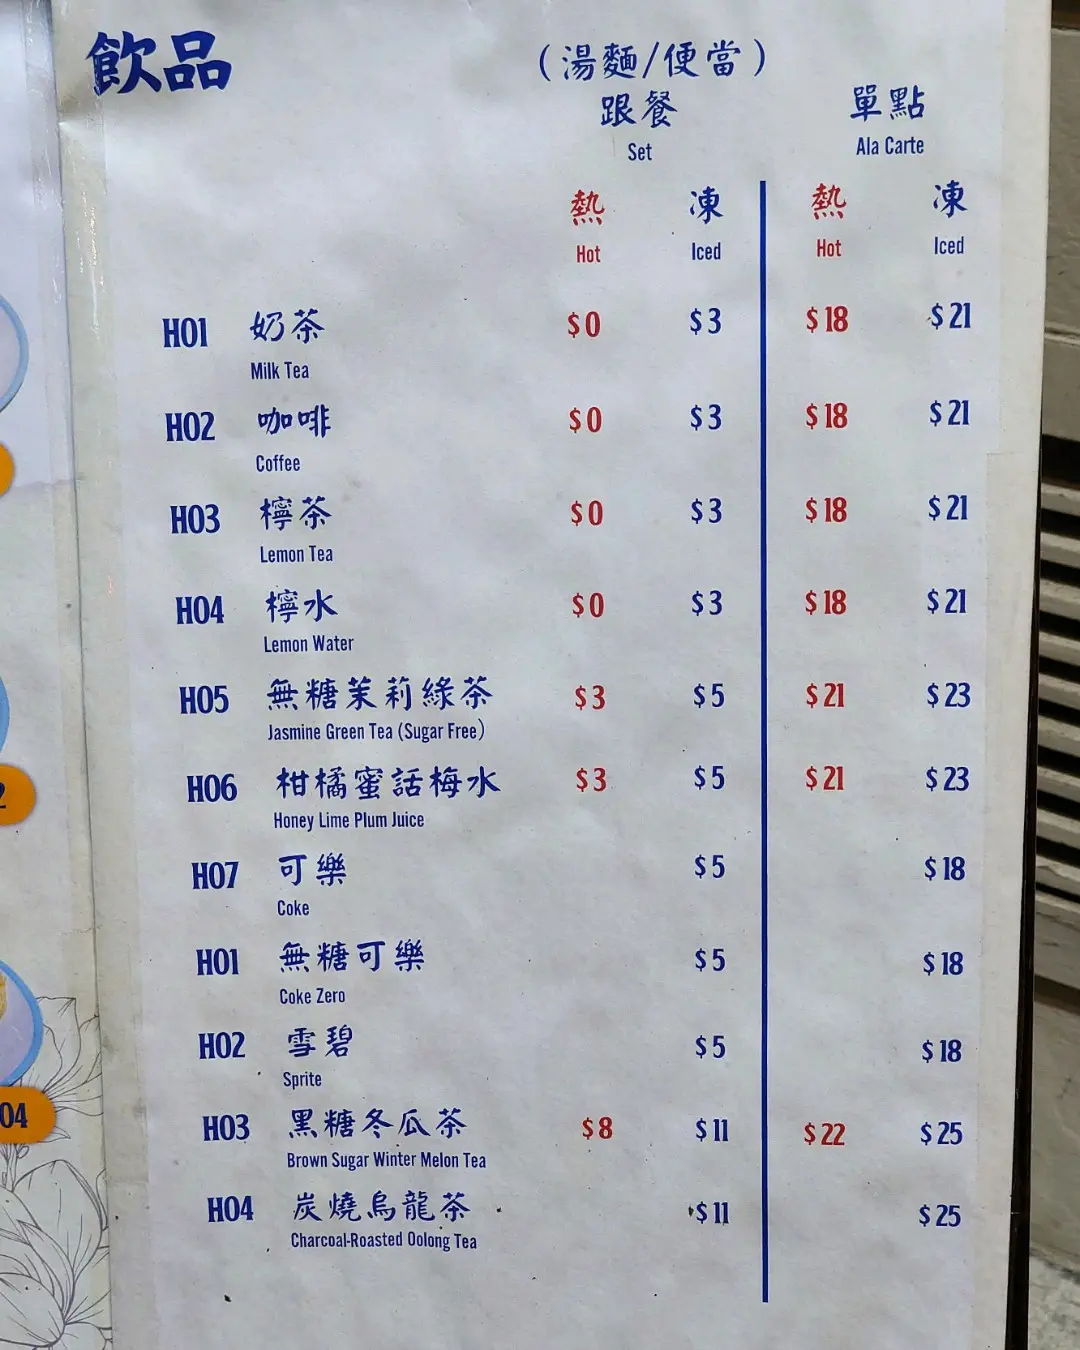 飲品
(湯麵/便當)
跟餐 單點
Set Ala Carte
熱 凍 熱 凍
Hot Iced Hot Iced
H01 奶茶 $0 $3 $18 $21
Milk Tea
H02 咖啡 $0 $3 $18 $21
Coffee
H03 檸茶 $0 $3 $18 $21
Lemon Tea
H04 檸水 $0 $3 $18 $21
Lemon Water
H05 無糖茉莉綠茶 $3 $5 $21 $23
Jasmine Green Tea (Sugar Free)
H06 柑橘蜜話梅水 $3 $5 $21 $23
Honey Lime Plum Juice
H07 可樂 $5 $18
Coke
H01 無糖可樂 $5 $18
Coke Zero
H02 雪碧 $5 $18
Sprite
H03 黑糖冬瓜茶 $8 $11 $22 $25
Brown Sugar Winter Melon Tea
H04 炭燒烏龍茶 $11 $25
Charcoal-Roasted Oolong Tea
2
04